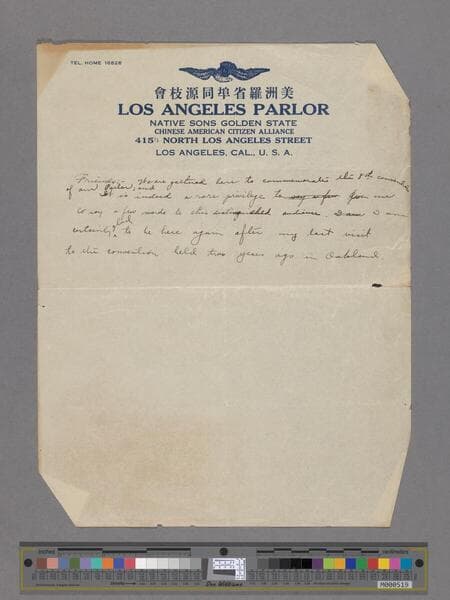 TEL. HOME 16828
會枝源同埠省羅洲美
LOS ANGELES PARLOR
NATIVE SONS GOLDEN STATE
CHINESE AMERICAN CITIZEN ALLIANCE
415½ NORTH LOS ANGELES STREET
LOS ANGELES, CAL., U. S. A.
Friends:- We are gathered here to commemorate the 8th
of our Parlor, and
It is indeed a rare privilege to say a few for me
to say a few words to this distinguished audience. I am
certainly glad to be here again after my last visit
to the convention held two years ago in Oakland.
inches
centimeters
Don Williams
M000519